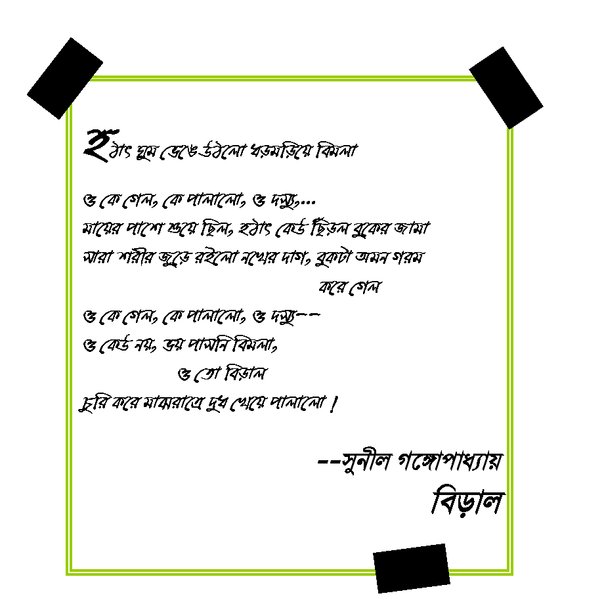 হঠাৎ ঘুম ভেঙে উঠলো ধড়মড়িয়ে বিমলা
ও কে গেল, কে পালালো, ও দস্যু,...
মায়ের পাশে শুয়ে ছিল, হঠাৎ কেউ ছিঁড়ল বুকের জামা
সারা শরীর জুড়ে রইলো নখের দাগ, বুকটা অমন গরম
করে গেল
ও কে গেল, কে পালালো, ও দস্যু--
ও কেউ নয়, ভয় পাসনি বিমলা,
ও তো বিড়াল
চুরি করে মাঝরাত্রে দুধ খেয়ে পালালো !
--সুনীল গঙ্গোপাধ্যায়
বিড়াল